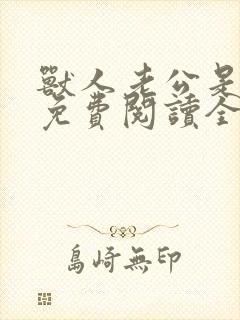 獸人老公是
免費閱讀全
島崎無印